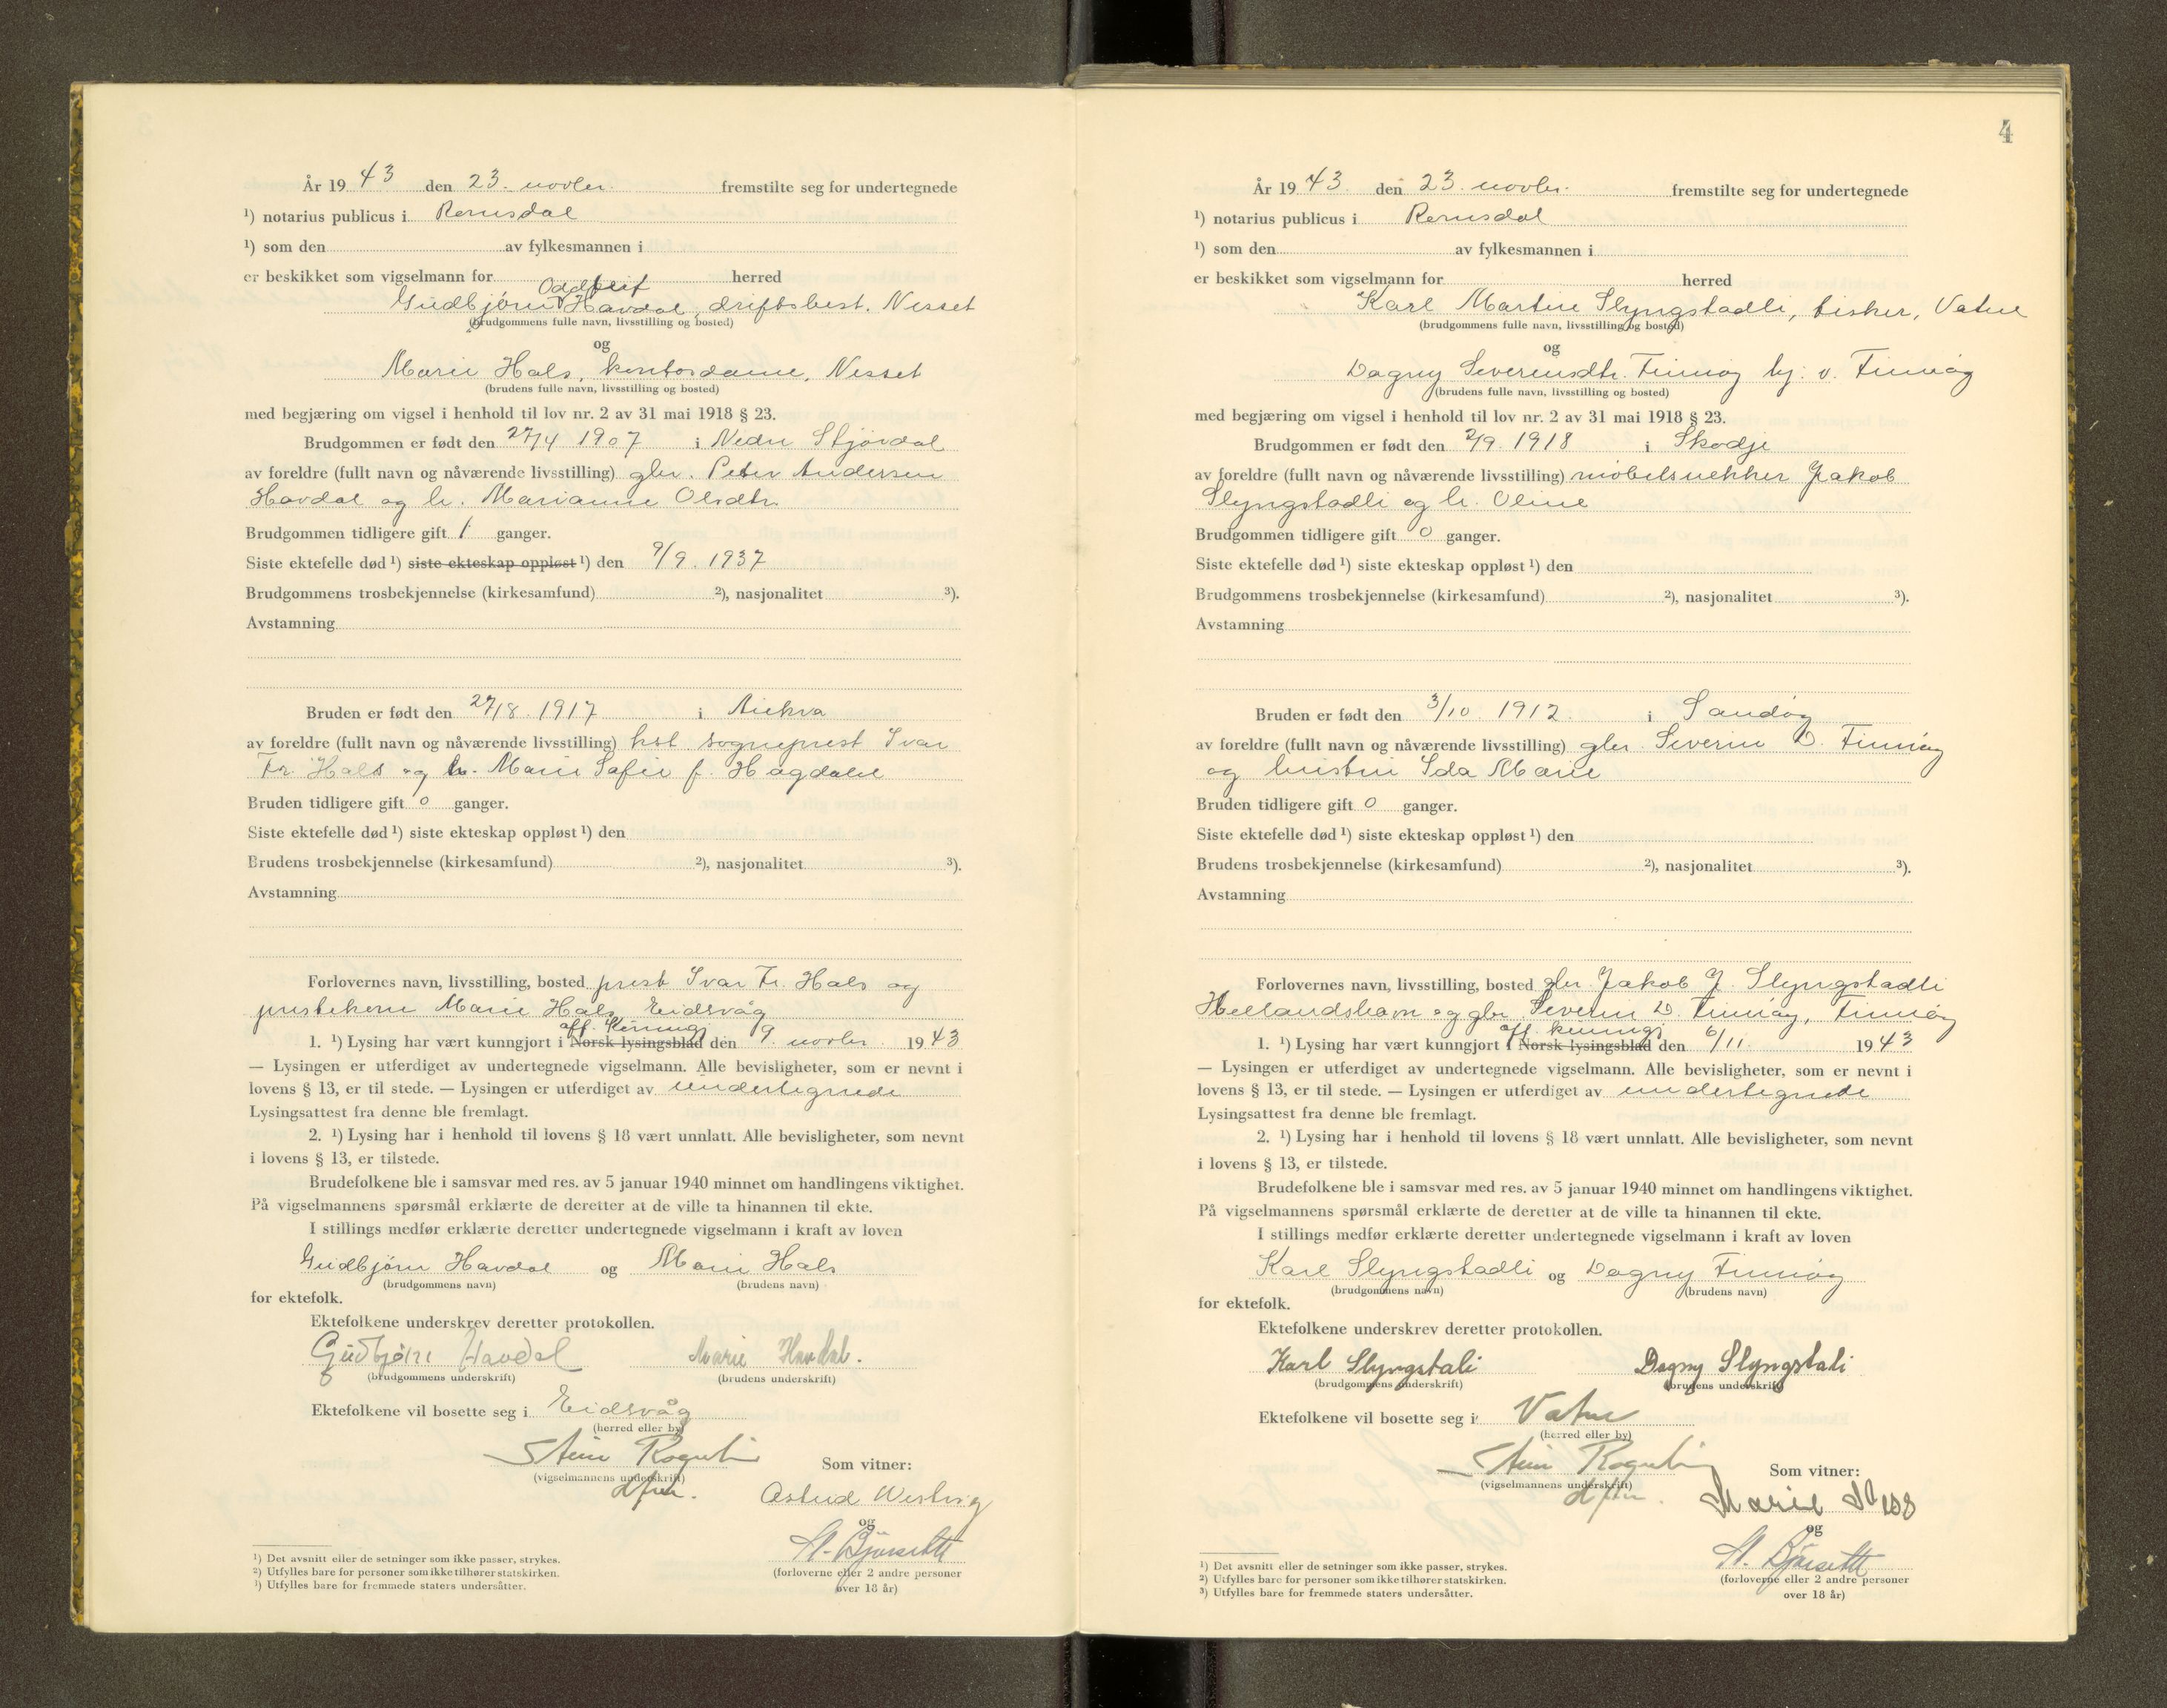 År 19 43 den 23. novbr. fremstilte seg for undertegnede
¹) notarius publicus i Romsdal
¹) som den av fylkesmannen i
er beskikket som vigselmann for herred
Oddleif
Gudbjörn Havdal, driftsbest. Nesset
(brudgommens fulle navn, livsstilling og bosted)
og
Marie Hals, kontordame, Nesset
(brudens fulle navn, livsstilling og bosted)
med begjæring om vigsel i henhold til lov nr. 2 av 31 mai 1918 § 23.
Brudgommen er født den 27/4 1907 i Nedre Stjördal
av foreldre (fullt navn og nåværende livsstilling) gbr. Peter Andersen
Havdal og h. Marianne Olsdtr.
Brudgommen tidligere gift 1 ganger.
Siste ektefelle død ¹) siste ekteskap oppløst ¹) den 9/9. 1937
Brudgommens trosbekjennelse (kirkesamfund) ²), nasjonalitet ³).
Avstamning
Bruden er født den 27/8. 1917 i
av foreldre (fullt navn og nåværende livsstilling) kst sogneprest Ivar
Fr. Hals og h. Marie Sofie f. Hagdahl
Bruden tidligere gift 0 ganger.
Siste ektefelle død ¹) siste ekteskap oppløst ¹) den
Brudens trosbekjennelse (kirkesamfund) ²), nasjonalitet ³).
Avstamning
Forlovernes navn, livsstilling, bosted prest Ivar Fr. Hals og
prestekone Marie Hals, Eidsvåg
off. kunng.
1. ¹) Lysing har vært kunngjort i Norsk lysingsblad den 9. novbr. 19 43
— Lysingen er utferdiget av undertegnede vigselmann. Alle bevisligheter, som er nevnt i
lovens § 13, er til stede. — Lysingen er utferdiget av undertegnede
Lysingsattest fra denne ble fremlagt.
2. ¹) Lysing har i henhold til lovens § 18 vært unnlatt. Alle bevisligheter, som nevnt
i lovens § 13, er tilstede.
Brudefolkene ble i samsvar med res. av 5 januar 1940 minnet om handlingens viktighet.
På vigselmannens spørsmål erklærte de deretter at de ville ta hinannen til ekte.
I stillings medfør erklærte deretter undertegnede vigselmann i kraft av loven
Gudbjörn Havdal og Marie Hals
(brudgommens navn) (brudens navn)
for ektefolk.
Ektefolkene underskrev deretter protokollen.
Gudbjörn Havdal Marie Havdal.
(brudgommens underskrift) (brudens underskrift)
Ektefolkene vil bosette seg i Eidsvåg
(herred eller by)
Som vitner:
(vigselmannens underskrift)
Astrid
og
(forloverne eller 2 andre personer
over 18 år)
¹) Det avsnitt eller de setninger som ikke passer, strykes.
²) Utfylles bare for personer som ikke tilhører statskirken.
³) Utfylles bare for fremmede staters undersåtter.
4
År 19 43. den 23. novbr. fremstilte seg for undertegnede
¹) notarius publicus i Romsdal
¹) som den av fylkesmannen i
er beskikket som vigselmann for herred
Karl Martin Slyngstadli, fisker, Vatne
(brudgommens fulle navn, livsstilling og bosted)
og
Dagny Severinsdtr. Finnöy hj. v. Finnöy
(brudens fulle navn, livsstilling og bosted)
med begjæring om vigsel i henhold til lov nr. 2 av 31 mai 1918 § 23.
Brudgommen er født den 2/9. 1918 i Skodje
av foreldre (fullt navn og nåværende livsstilling) möbelsnekker Jakob
Slyngstadli og h. Oline
Brudgommen tidligere gift 0 ganger.
Siste ektefelle død ¹) siste ekteskap oppløst ¹) den
Brudgommens trosbekjennelse (kirkesamfund) ²), nasjonalitet ³).
Avstamning
Bruden er født den 3/10. 1912. i Sandöy
av foreldre (fullt navn og nåværende livsstilling) gbr. Severin D. Finnöy
og hustru Ida Marie
Bruden tidligere gift 0 ganger.
Siste ektefelle død ¹) siste ekteskap oppløst ¹) den
Brudens trosbekjennelse (kirkesamfund) ²), nasjonalitet ³).
Avstamning
Forlovernes navn, livsstilling, bosted gbr. Jakob J. Slyngstadli
Hellandshavn og gbr. Severin D. Finnöy, Finnöy
off. kunng.
1. ¹) Lysing har vært kunngjort i Norsk lysingsblad den 6/11. 19 43
— Lysingen er utferdiget av undertegnede vigselmann. Alle bevisligheter, som er nevnt i
lovens § 13, er til stede. — Lysingen er utferdiget av undertegnede
Lysingsattest fra denne ble fremlagt.
2. ¹) Lysing har i henhold til lovens § 18 vært unnlatt. Alle bevisligheter, som nevnt
i lovens § 13, er tilstede.
Brudefolkene ble i samsvar med res. av 5 januar 1940 minnet om handlingens viktighet.
På vigselmannens spørsmål erklærte de deretter at de ville ta hinannen til ekte.
I stillings medfør erklærte deretter undertegnede vigselmann i kraft av loven
Karl Slyngstadli og Dagny Finnöy
(brudgommens navn) (brudens navn)
for ektefolk.
Ektefolkene underskrev deretter protokollen.
Karl Slyngstali Dagny Slyngstali
(brudgommens underskrift) (brudens underskrift)
Ektefolkene vil bosette seg i Vatne
(herred eller by)
Som vitner:
(vigselmannens underskrift)
Marie
og
(forloverne eller 2 andre personer
over 18 år)
¹) Det avsnitt eller de setninger som ikke passer, strykes.
²) Utfylles bare for personer som ikke tilhører statskirken.
³) Utfylles bare for fremmede staters undersåtter.